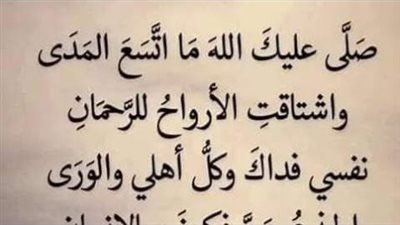 صَلَّى عليكَ اللهَ مَا اتَّسَعَ المَدَى
واشتاقتِ الأرواحُ للرَّحمَانِ
نفسي فداكَ وكلُّ أهلي والوَرَى